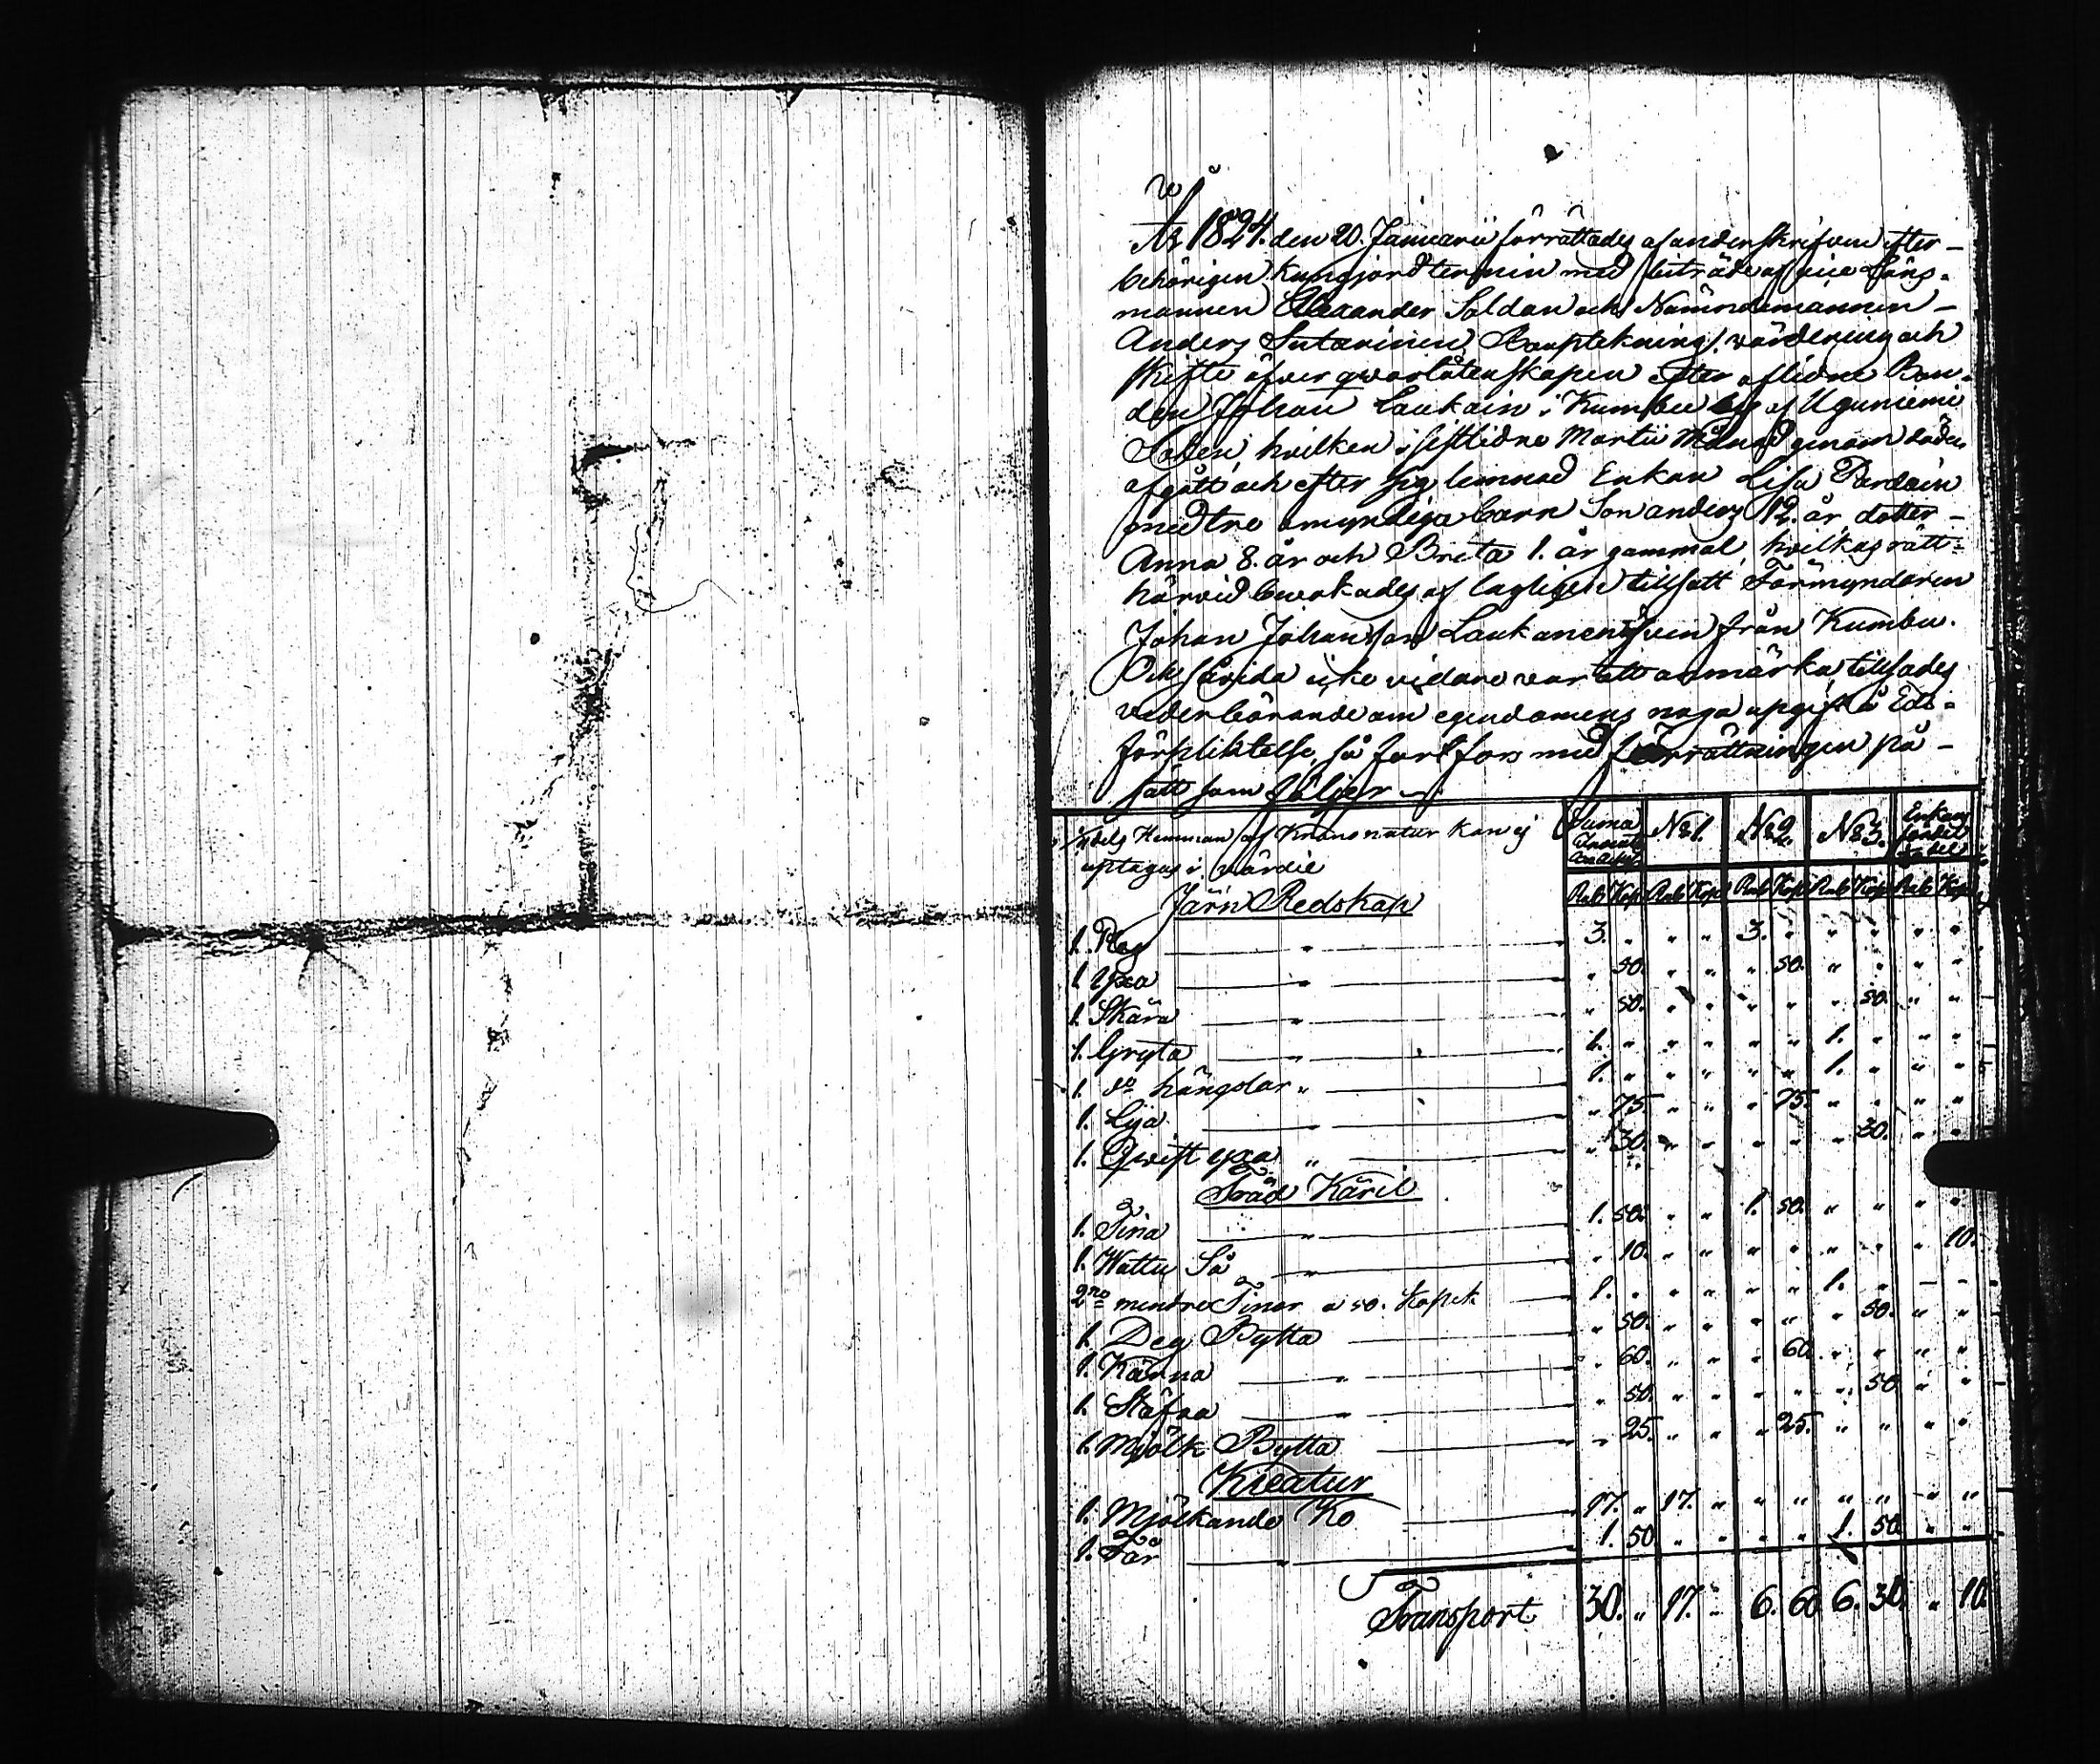 År 1824. den 20. Januarii förrättades af underskrifven efter-
behörigen kungjord termin med biträde af vice Läns-
mannen Alexander Soldan och Nämndemannen-
Anders Sutarinen Bouptekning, värdering och
skifte öfver qvarlåtenskapen efter aflidne Bon-
den Johan Laukain i Kumbu by af Uguniemi
Soken, hvilken i sistlidne Martii Månad genom döden
afgått och efter sig lemnad Enkan Lisa Pardain
med tre omyndiga barn Son anders 12. år, dotter-
Anna 8. år och Brita 1. år gammal, hvilkas rätt-
härvid bevakades af lagligen tillsatt Förmyndaren
Johan Johansson Laukanen från Kumbu.
Och icke vidare var att anmärka, tillsades
vederbörande om egendomens noga upgift å Eds-
förpliktelse, så fortfors med förrättningen på-
sätt som följer
dels Hemman af Krono natur kan ej Suma No 1. No 2. No 3. Enkans fördel
uptagas i värdie
Järn Redskap Rub Kop Rub Kop Rub Kop Rub Kop Rub Kop
1. Plog " 3. " " " 3. " " " " "
1. Yxa " " 50. " " " 50. " " " "
1. Skära " " 50. " " " " " 50. " "
1. Gryta " 1. " " " " " 1. " " "
1. do hängslar " 1. " " " " " 1. " " "
1. Lija " " 75. " " " 75. " " " "
1. Qvist yxa " " 30. " " " " " 30. " "
Träd Käril
1. Tina " 1. 50. " " 1. 50. " " " "
1. Wattu Så " " 10. " " " " " " " 10.
2ne mindre Tinor a 50. Kopek 1. " " " " " 1. " - -
1. Deg Bytta " 50. " " " " " 50. " "
1. Kärna " " 60. " " " 60. " " " "
1. Stäfva " " 50. " " " " " 50 " "
1. Mjölk Bytta " 25. " " " 25. " " " "
Kreatur
1. Mjölkande Ko 17. " 17. " " " " " " "
1. Får " 1. 50 " " " " 1. 50 " "
Transport 30. " 17. " 6. 60 6. 30. " 10.